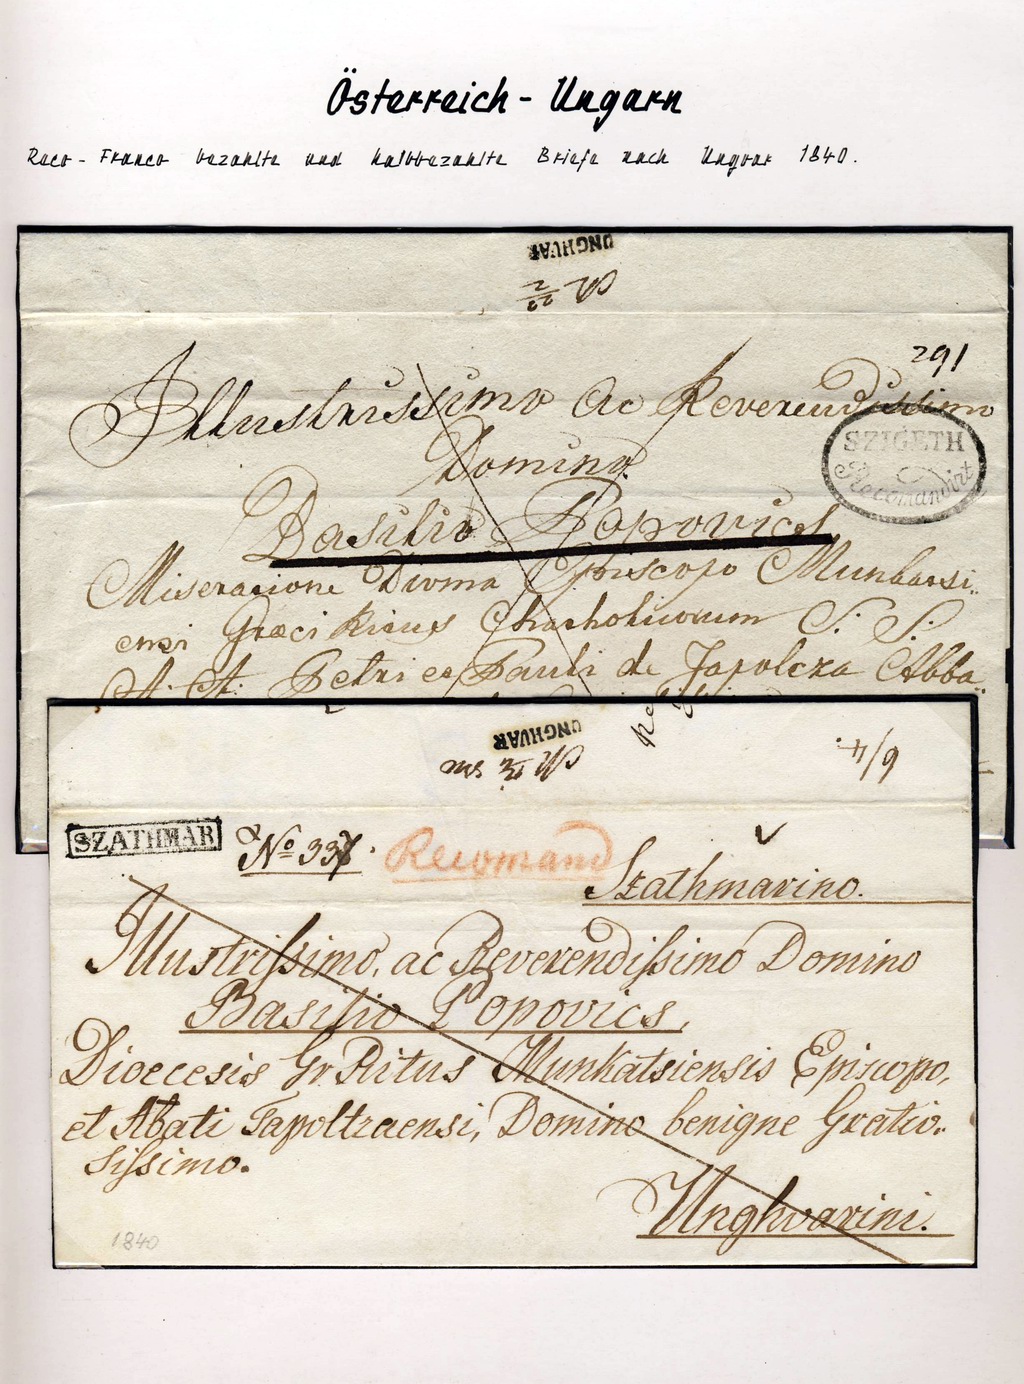 Österreich - Ungarn
Reco - Franco bezahlte und halbbezahlte Briefe nach Ungvar 1840.
UNGHVAR
291
Illustrissimo ac Reverendissimo
Domino
SZIGETH
Recomandirt
Basilio Popovics
Miseratione Divina Episcopo Munkacsi-
ensi Graeci Ritus Chatholicorum S. S.
A. A. Petri et Pauli de Tapolcza Abba
UNGHVAR
9/4.
SZATHMAR
No 337.
Recomand
Szathmarino.
Illustrissimo, ac Reverendissimo Domino
Basilio Popovics,
Dioecesis Gr. Ritus Munkatsiensis Episcopo,
et Abati Tapoltzaensi, Domino benigne Gratio-
sissimo.
Unghvarini.
1840